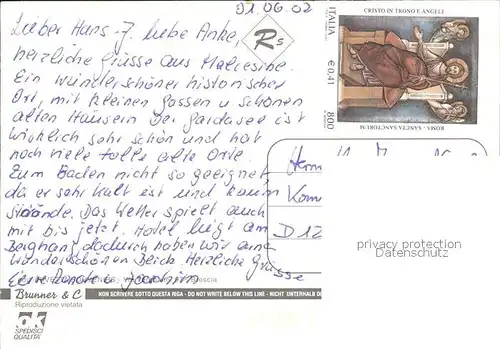 01.06.02
Lieber Hans-J. liebe Anke,
herzliche Grüsse aus Malcesine.
Ein wunderschöner historischer
Ort, mit kleinen Gassen u schönen
alten Häusern. Der Gardasee ist
wirklich sehr schön und hat
noch viele tolle alte Orte.
Zum Baden nicht so geeignet
da er sehr kalt ist und kaum
Strände. Das Wetter spielt auch
mit bis jetzt. Hotel liegt am
Berghang, dadurch haben wir einen
wunderschönen Blick. Herzliche Grüsse
Eure Renate u Joachim
Rs
ITALIA
€ 0,41
800
CRISTO IN TRONO E ANGELI
ROMA - SANCTA SANCTORUM
D 12
privacy protection
Datenschutz
Brescia
Brunner & C
NON SCRIVERE SOTTO QUESTA RIGA - DO NOT WRITE BELOW THIS LINE - NICHT UNTERHALB D
Riproduzione vietata
OK
SPEDISCI
QUALITÀ